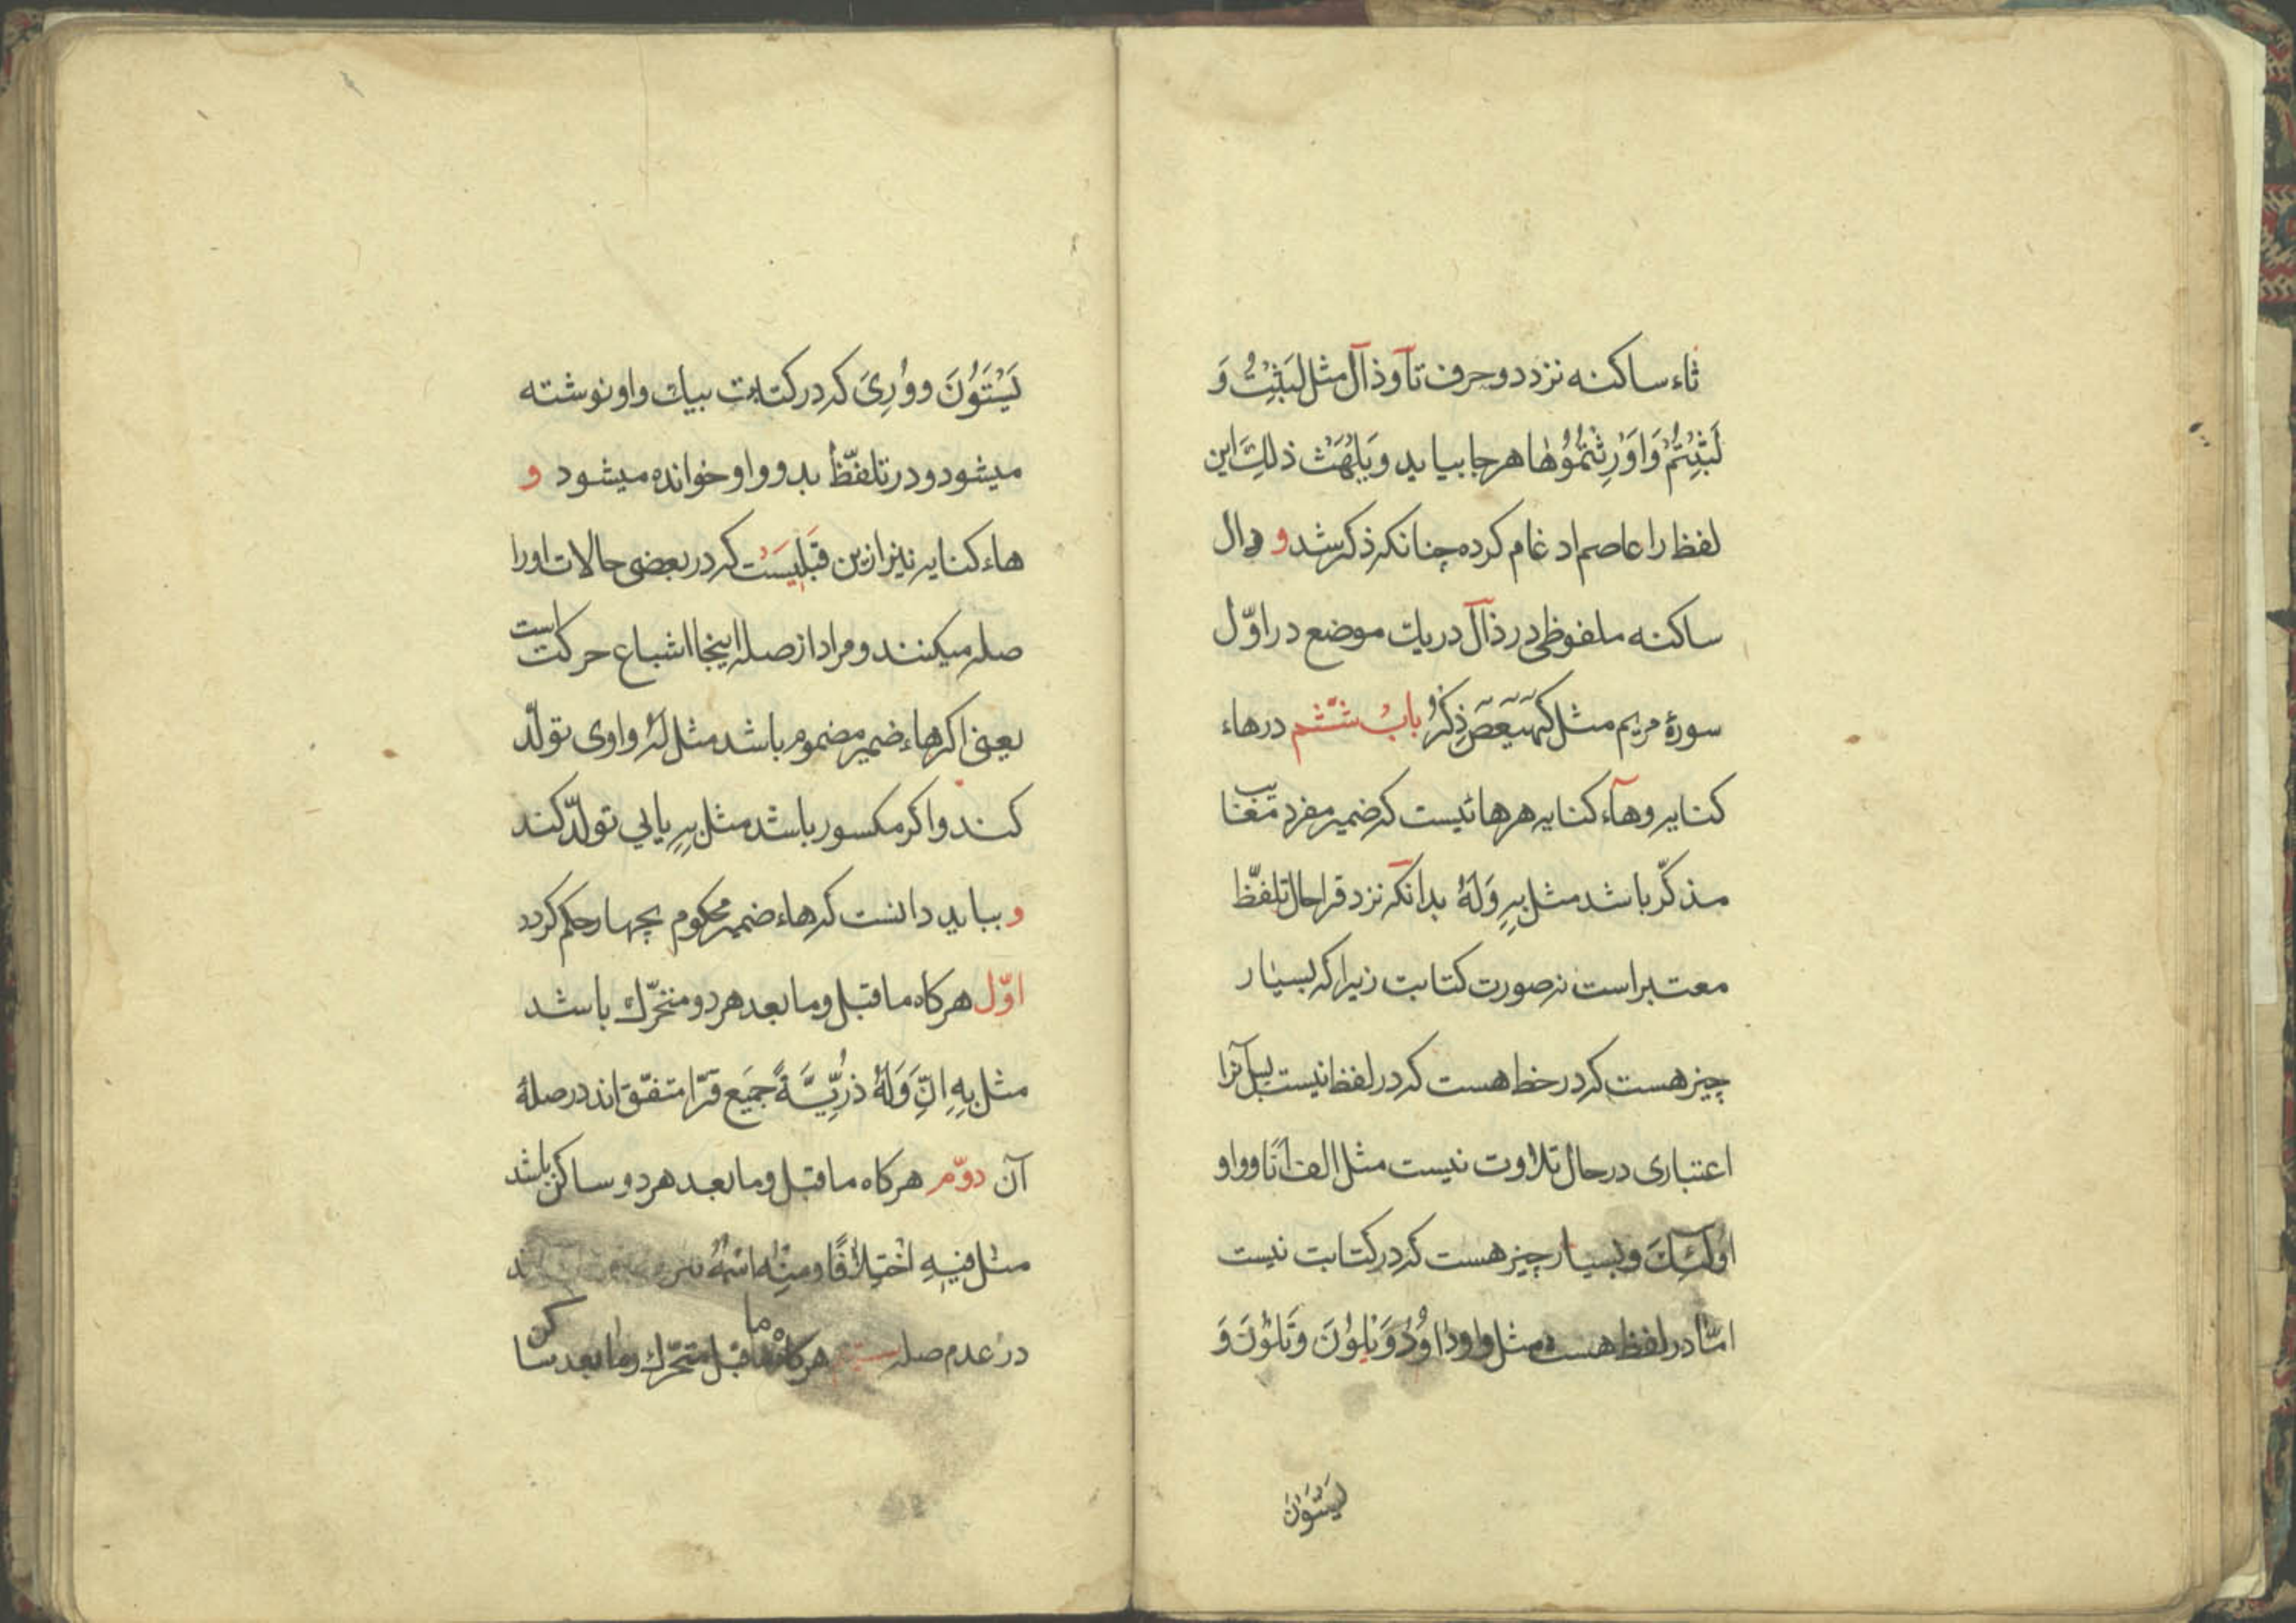 ثاء ساکنه نزد دو حرف تآ و ذآل مثل لَبَثْتُ وَ
لَبِثْتُمْ وَاُوْرِثْتُمُوُهٰا هر جا بیاید و یَلْهَثْ ذلِكَ این
لفظ را عاصم ادغام کرده چنانکه ذکر شد و دال
ساکنه ملفوظی در ذآل در یك موضع در اوّل
سورهٔ مریم مثل کهٓیٓعٓصٓ ذِکْرُ بابُ ششم در هاء
کنایه و هآء کنایه هر هائیست که ضمیر مفرد مغایب
مذکّر باشد مثل بِهِ وَلَهُ بدانکه نزد قرا حال تلفّظ
معتبر است نه صورت کتابت زیرا که بسیار
چیز هست که در خط هست که در لفظ نیست پس آنرا
اعتباری در حال تلاوت نیست مثل الف اَنَا و واو
اولٓئِكَ و بسیار چیز هست که در کتابت نیست
امّا در لفظ هست مثل واو دٰاوُدُ وَ یَلوُنَ وَ تَلوُنَ وَ
یَسْتَوُنَ
یَسْتَوُنَ و وُرِیَ که در کتابت بیك واو نوشته
میشود و در تلفّظ بدو واو خوانده میشود و
هاء کنایه نیز ازین قَبَلِیَسْت که در بعضی حالات اورا
صله میکنند و مراد از صله اینجا اشباع حرکت است
یعنی اکر هاء ضمیر مضموم باشد مثل لَهُ واوی تولّد
کند و اکر مکسور باشد مثل بِهِ یایی تولّد کند
و بباید دانست که هاء ضمیر محکوم بچهار حکم کردد
اوّل هرکاه ماقبل و ما بعد هر دو متحرّك باشد
مثل بِهِ اِنَّ وَلَهُ ذُرِّیَّةً جمیع قرّا متفّق اند در صلهٔ
آن دوّم هرکاه ماقبل و ما بعد هر دو ساکن باشد
مثل فیهِ اخْتِلٰافًا و مِنْهُ اسْمُهُ
در عدم صله هرکاه ما قبل متحرّك و ما بعد ساکن